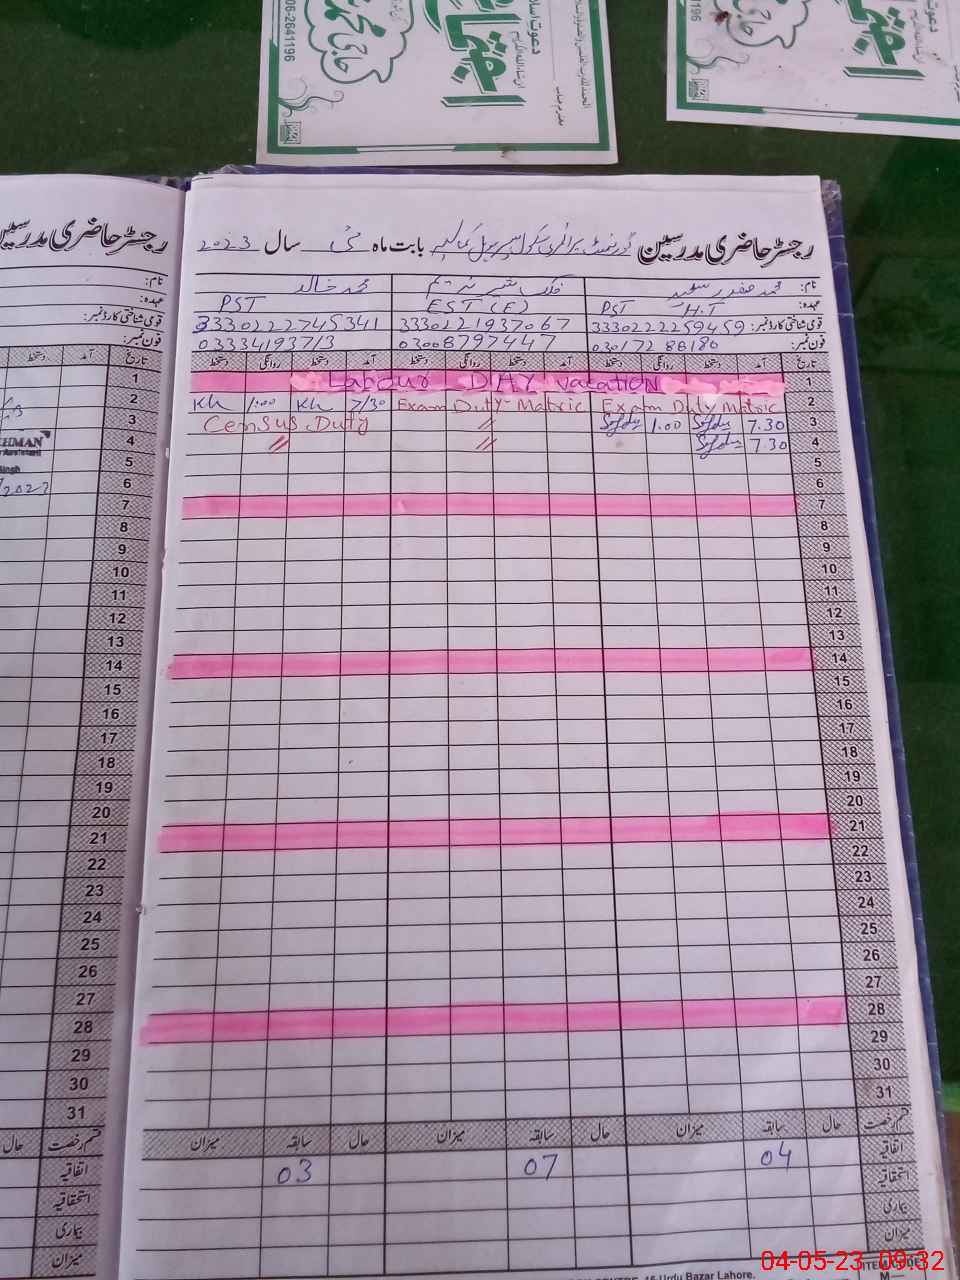 06-2641196
حاجی محمد
اجتماع
دعوت اسلامی
196
اجتماع
دعوت
رجسٹر حاضری مدرسین
رجسٹر حاضری مدرسین گورنمنٹ پرائمری سکول بابت ماہ مئی سال 2023
نام: محمد صفدر سعید محمد خالد
عہدہ: PST H.T EST (E) PST
قومی شناختی کارڈ نمبر: 3330222259459 3330221937067 3330222745341
فون نمبر: 03017288180 03008797447 03334193713
تاریخ آمد دستخط روانگی دستخط آمد دستخط روانگی دستخط آمد دستخط روانگی دستخط
1 Labour DAY vacation
2 Exam Duty Matric Exam Duty Matric 7/30 Kh 1:00 Kh
3 7.30 Safdar 1.00 Safdar // Census Duty
4 7.30 Safdar // //
5
6
7
8
9
10
11
12
13
14
15
16
17
18
19
20
21
22
23
24
25
26
27
28
29
30
31
قسم رخصت حال سابقہ میزان حال سابقہ میزان حال سابقہ میزان
اتفاقیہ 04 07 03
استحقاقیہ
بیماری
میزان
نام:
عہدہ:
قومی شناختی کارڈ نمبر:
فون نمبر:
تاریخ آمد دستخط
1
2
3
HMAN
4
5
6
/2023
7
8
9
10
11
12
13
14
15
16
17
18
19
20
21
22
23
24
25
26
27
28
29
30
31
قسم رخصت حال
اتفاقیہ
استحقاقیہ
بیماری
میزان
CENTRE, 15-Urdu Bazar Lahore.
ITEM CODE
M—
04-05-23 09:32